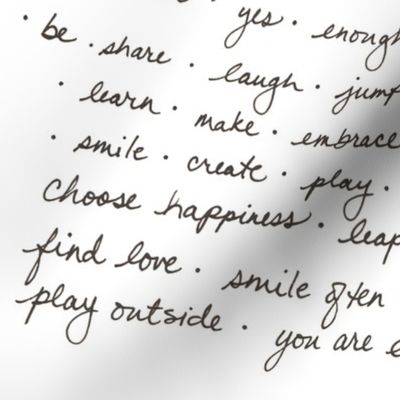 · yes · enough
· be · share · laugh · jump
· learn · make · embrace
· smile · create · play ·
choose happiness · leap
find love · smile often
play outside · you are